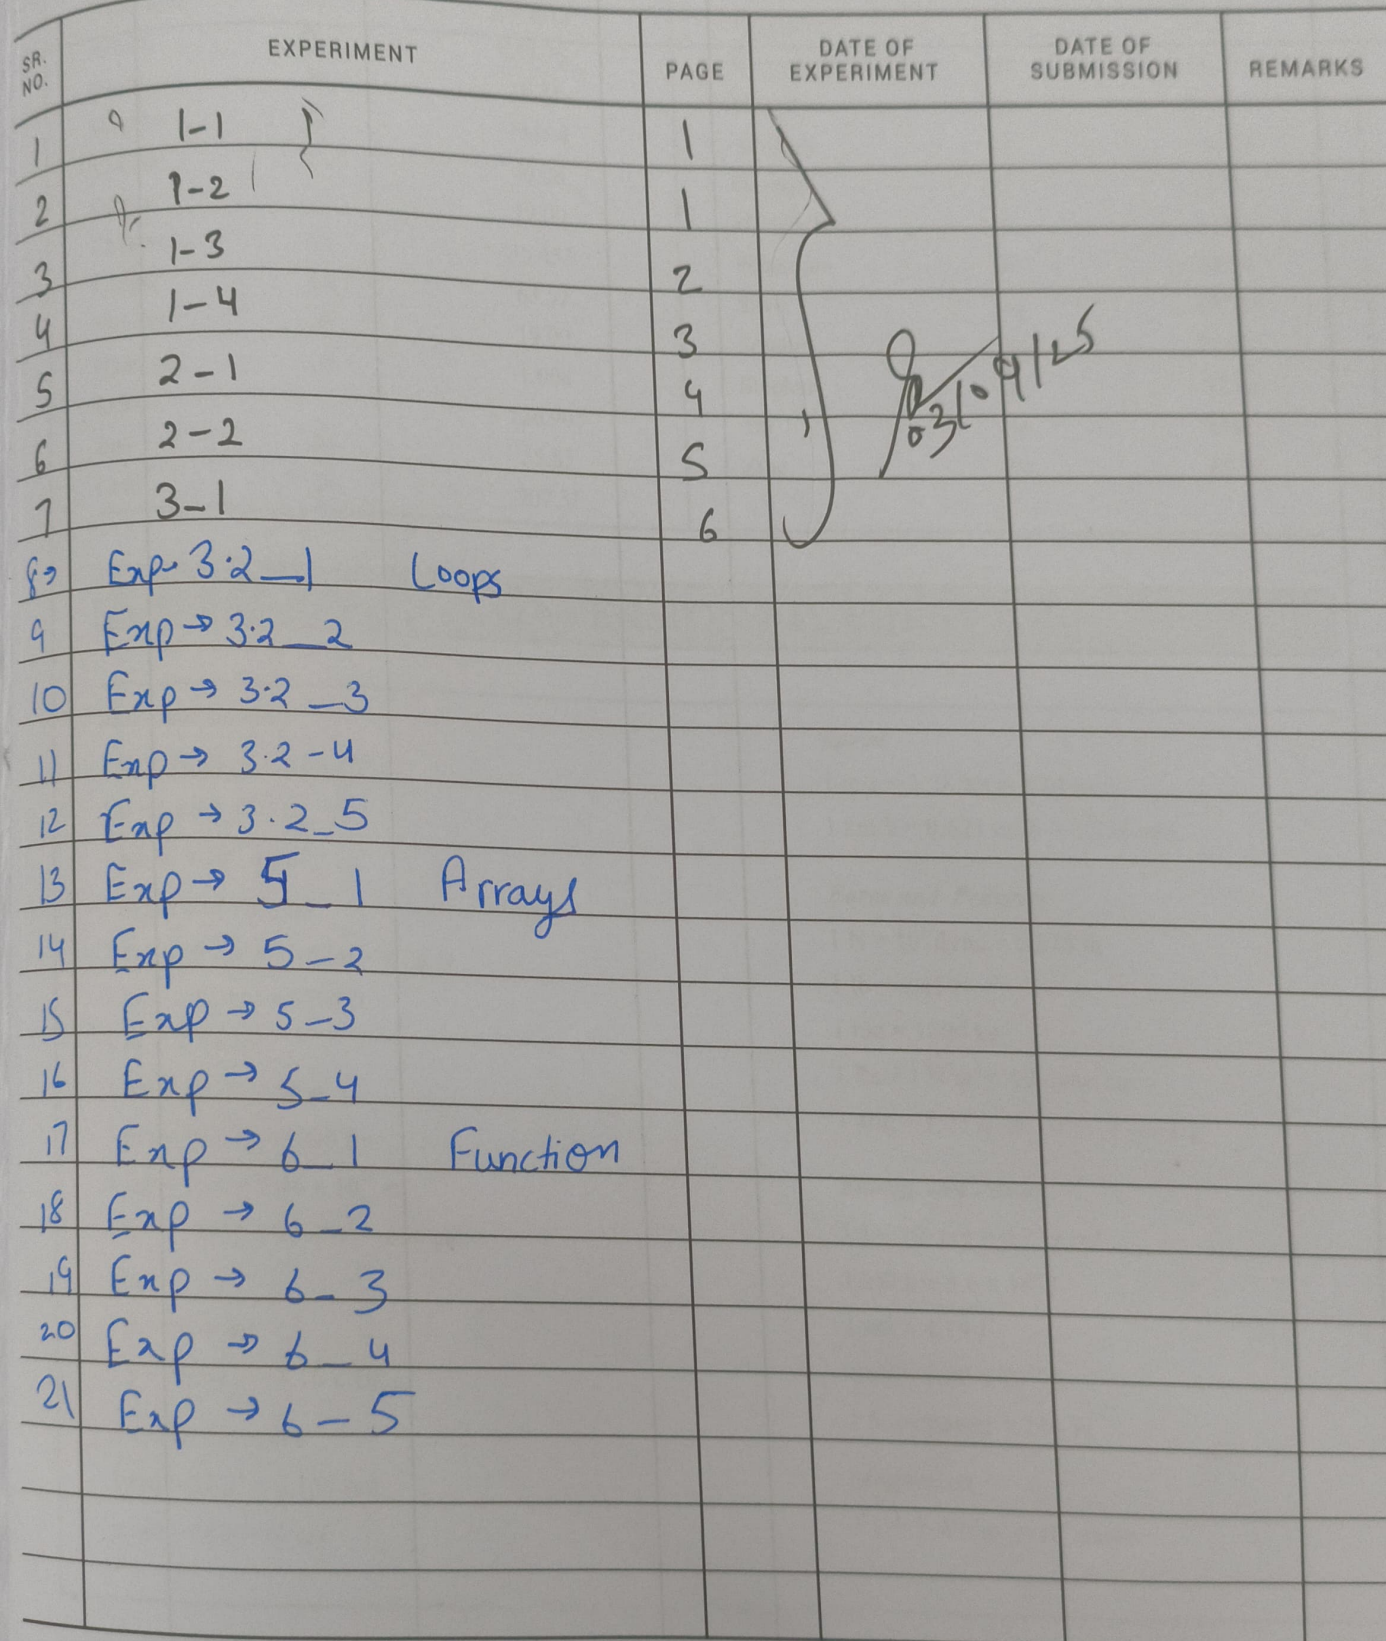 SR. NO. EXPERIMENT PAGE DATE OF EXPERIMENT DATE OF SUBMISSION REMARKS
1 1-1 1
2 1-2 1
3 1-3 2
4 1-4 3
5 2-1 4
6 2-2 5
7 3-1 6
03/09/25
8→ Exp 3.2_1 Loops
9 Exp → 3.2_2
10 Exp → 3.2_3
11 Exp → 3.2-4
12 Exp → 3.2_5
13 Exp → 5_1 Arrays
14 Exp → 5-2
15 Exp → 5-3
16 Exp → 5-4
17 Exp → 6_1 Function
18 Exp → 6_2
19 Exp → 6_3
20 Exp → 6_4
21 Exp → 6-5